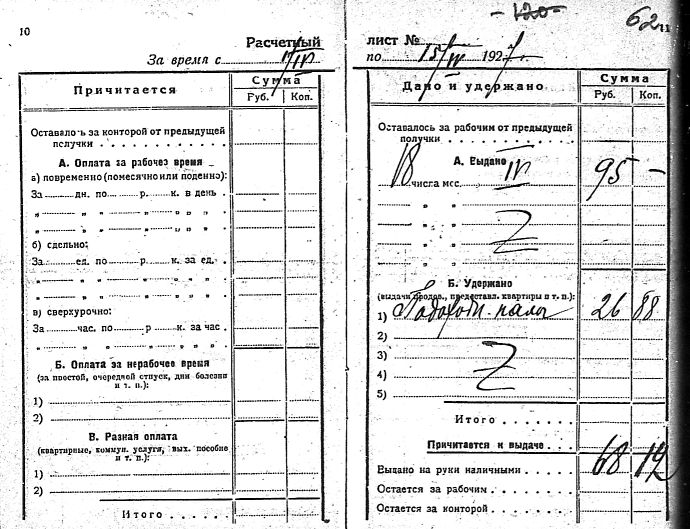 10
Расчетный
За время с 1/IV
Причитается
Сумма
Руб. Коп.
Оставалось за конторой от предыдущей
получки
А. Оплата за рабочее время
а) повременно (помесячно или поденно):
За дн. по р. к. в день
„ „ „ „ „ „
„ „ „ „ „ „
б) сдельно:
За ед. по р. к. за ед.
„ „ „ „ „ „
„ „ „ „ „ „
в) сверхурочно:
За час. по р к. за час
„ „ „ „ „ „
Б. Оплата за нерабочее время
(за простой, очередной отпуск, дни болезни
и т. п.):
1)
2)
В. Разная оплата
(квартирные, коммун. услуги, вых. пособие
и т. п.):
1)
2)
Итого
120
62
11
лист №
по 15/IV 192
Дано и удержано
Сумма
Руб. Коп.
Оставалось за рабочим от предыдущей
получки
А. Выдано
18 числа мсс. IV 95 -
„ „
„ „
„ „
„ „
Б. Удержано
(выдачи продов., предоставл. квартиры и т. п.):
1) Подоходн. налог 26 88
2)
3)
4)
5)
Итого
Причитается к выдаче 68 12
Выдано на руки наличными
Остается за рабочим
Остается за конторой